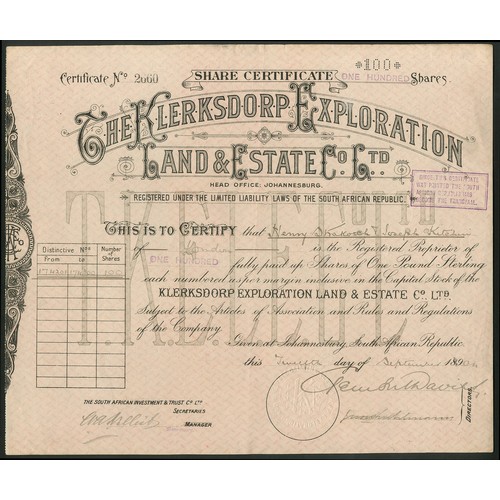 *100*
Certificate No 2660
SHARE CERTIFICATE
ONE HUNDRED Shares.
THE KLERKSDORP EXPLORATION
LAND & ESTATE Co. LTD
HEAD OFFICE: JOHANNESBURG.
REGISTERED UNDER THE LIMITED LIABILITY LAWS OF THE SOUTH AFRICAN REPUBLIC.
THIS IS TO CERTIFY that Henry Strakosch & Joseph
of London is the Registered Proprietor of
ONE HUNDRED fully paid up Shares of One Pound Sterling
each numbered as per margin inclusive in the Capital Stock of the
KLERKSDORP EXPLORATION LAND & ESTATE Co. LTD.
Subject to the Articles of Association and Rules and Regulations
of the Company.
Given at Johannesburg, South African Republic.
this Twelfth day of September 189
Distinctive Nos
Number of Shares
From to
THE SOUTH AFRICAN INVESTMENT & TRUST Co. LTD
SECRETARIES
MANAGER
DIRECTORS.